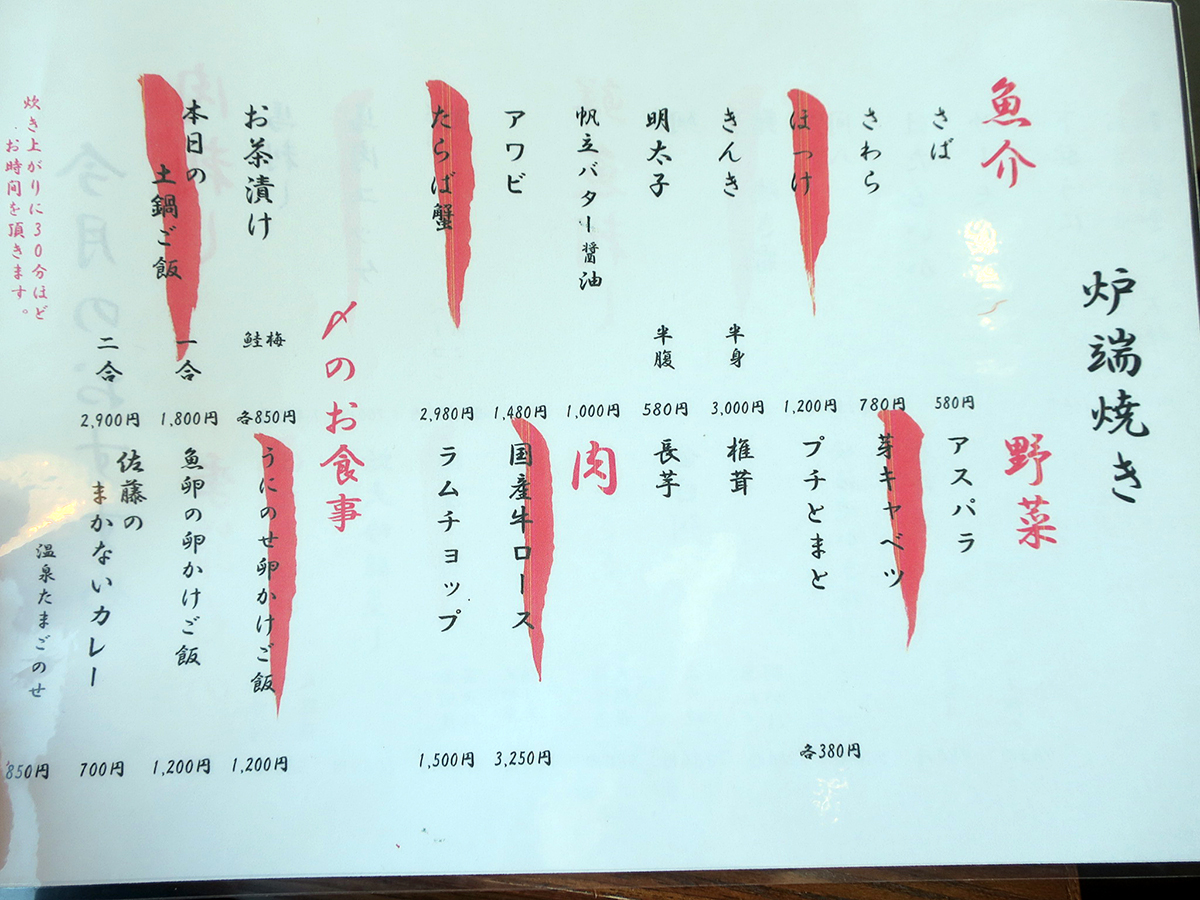 炉端焼き
魚介
さば 580円
さわら 780円
ほっけ 1,200円
きんき 半身 3,000円
明太子 半腹 580円
帆立バター醤油 1,000円
アワビ 1,480円
たらば蟹 2,980円
野菜
アスパラ
芽キャベツ
プチとまと
椎茸
長芋
各380円
肉
国産牛ロース 3,250円
ラムチョップ 1,500円
〆のお食事
お茶漬け 梅 鮭 各850円
本日の
土鍋ご飯
一合 1,800円
二合 2,900円
炊き上がりに30分ほど
お時間を頂きます。
うにのせ卵かけご飯 1,200円
魚卵の卵かけご飯 1,200円
佐藤の
まかないカレー 700円
温泉たまごのせ 850円